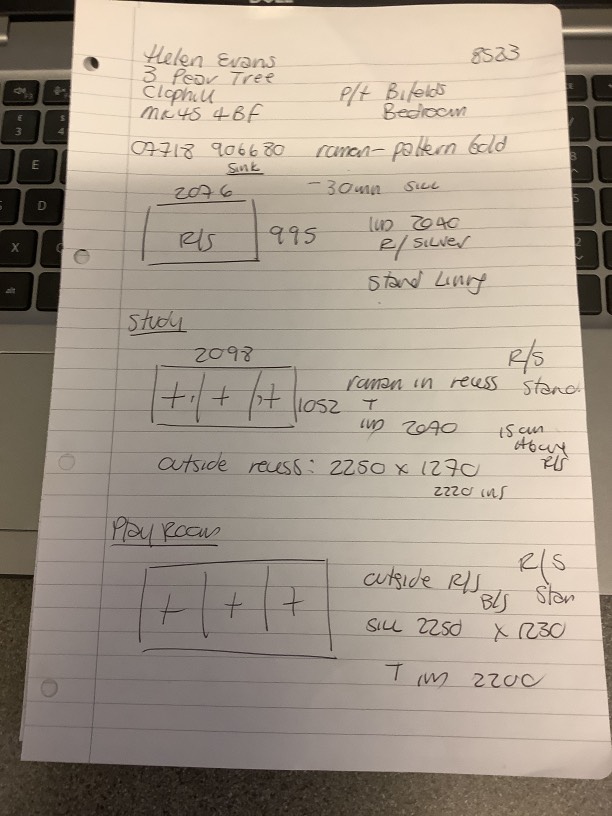 Helen Evans 8523
3 Pear Tree
Clophill P/t Bifolds
MK45 4BF Bedroom
07718 906680 roman - pattern Gold
Sink
2076 - 30mm sill
R/S 995 2040
R/Silver
Stand Lining
Study
2098 R/S
roman in recess Stand
1052 T
2040 15cm
Above
R/S
outside recess: 2250 x 1270
2220 ins
Play Room
outside R/S R/S
B/S Stan
Sill 2250 x 1230
T 2200